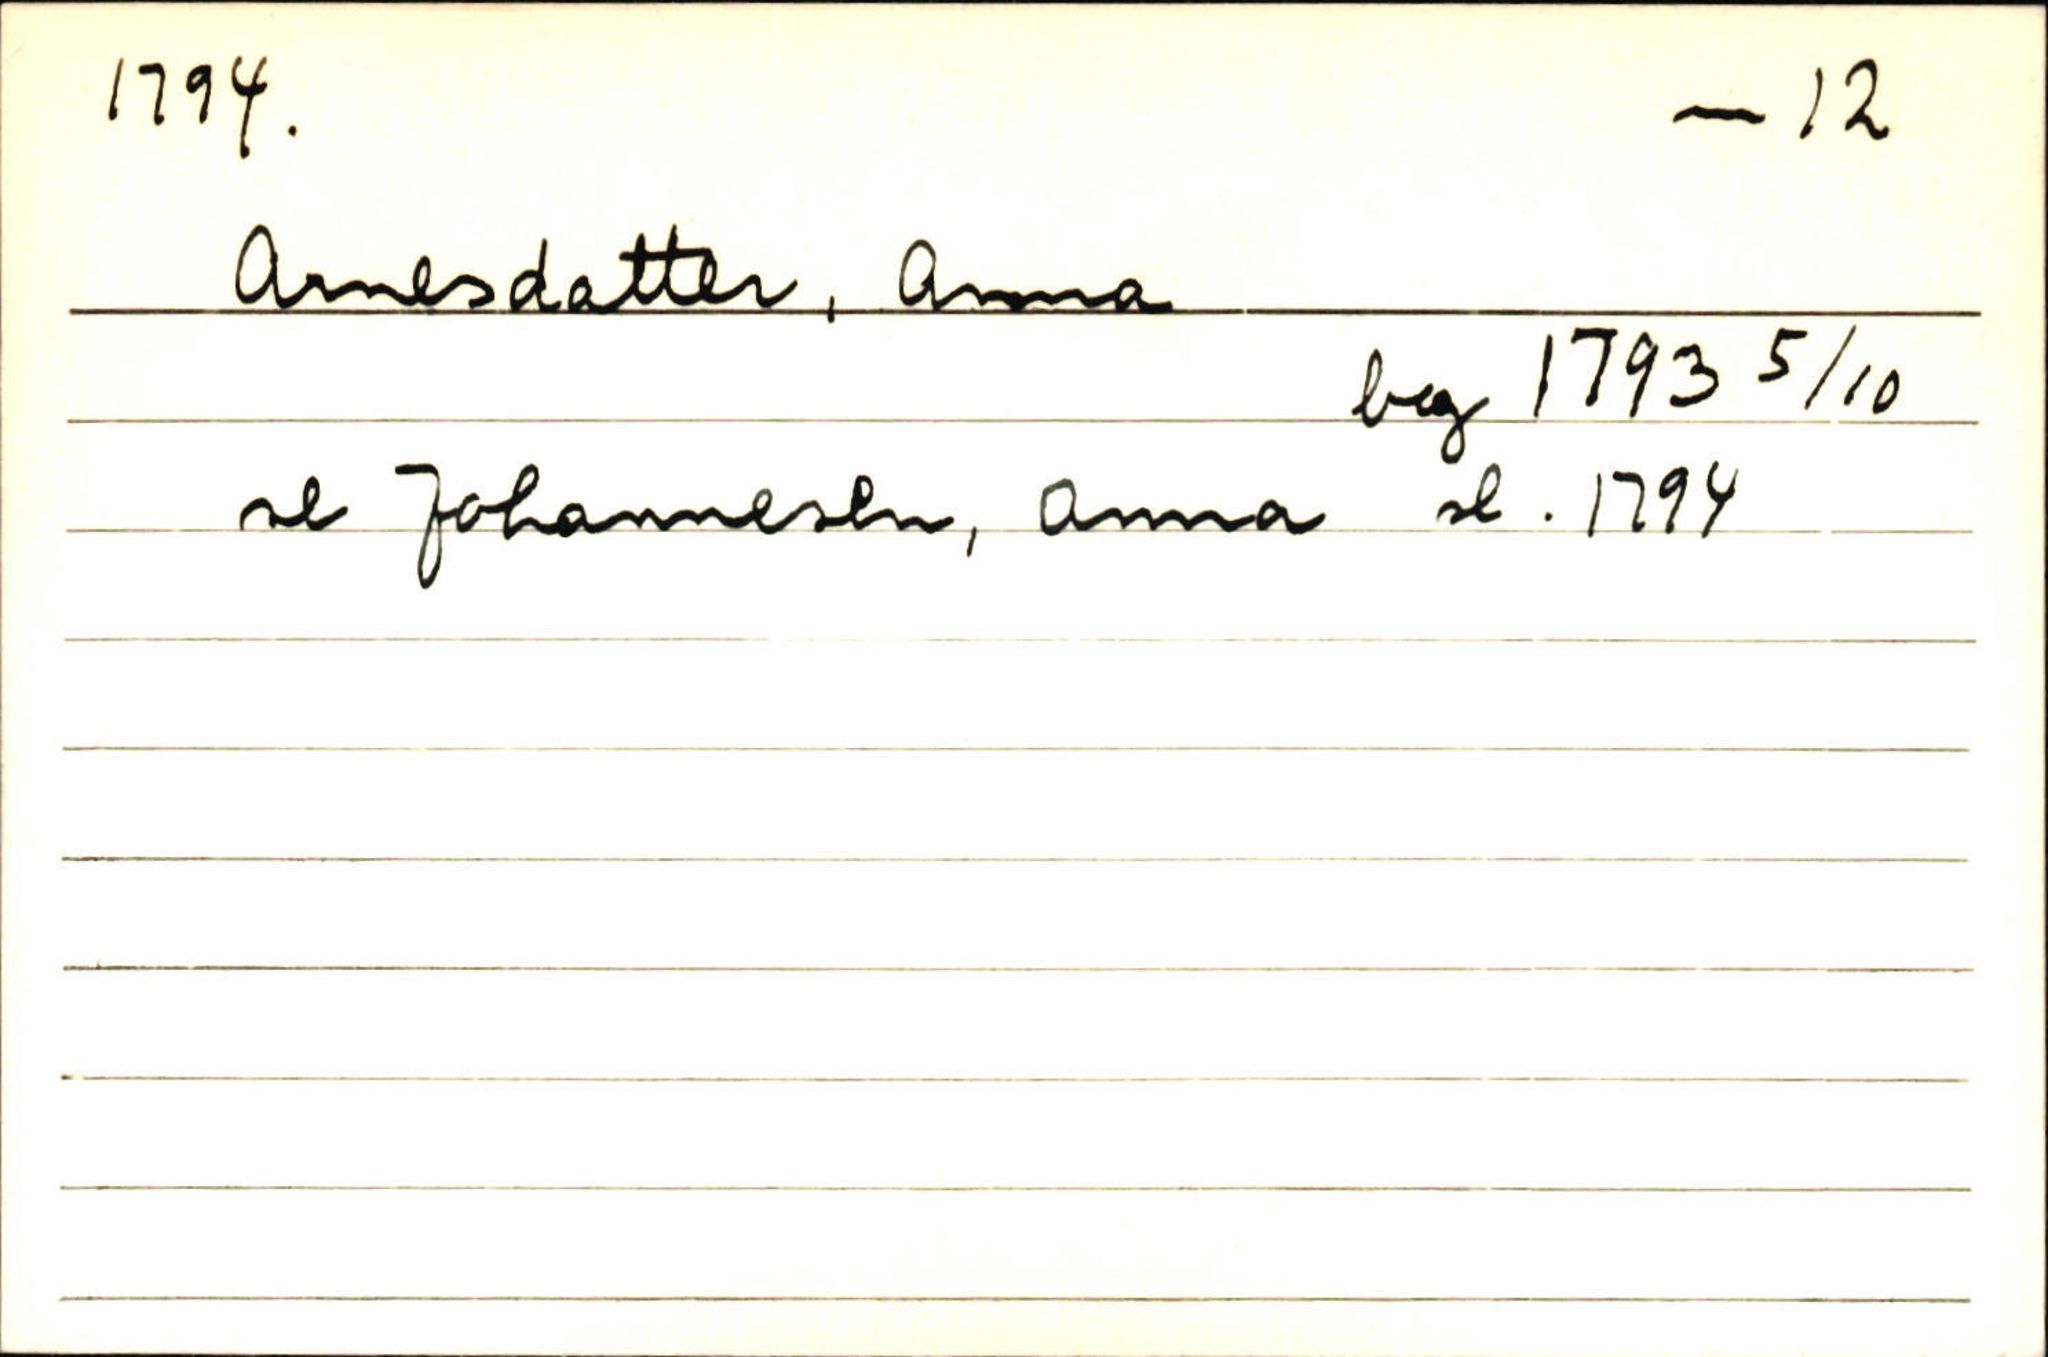 1794. — 12
Arnesdatter, Anna
beg 1793 5/10
se Johannesen, Anna se. 1794